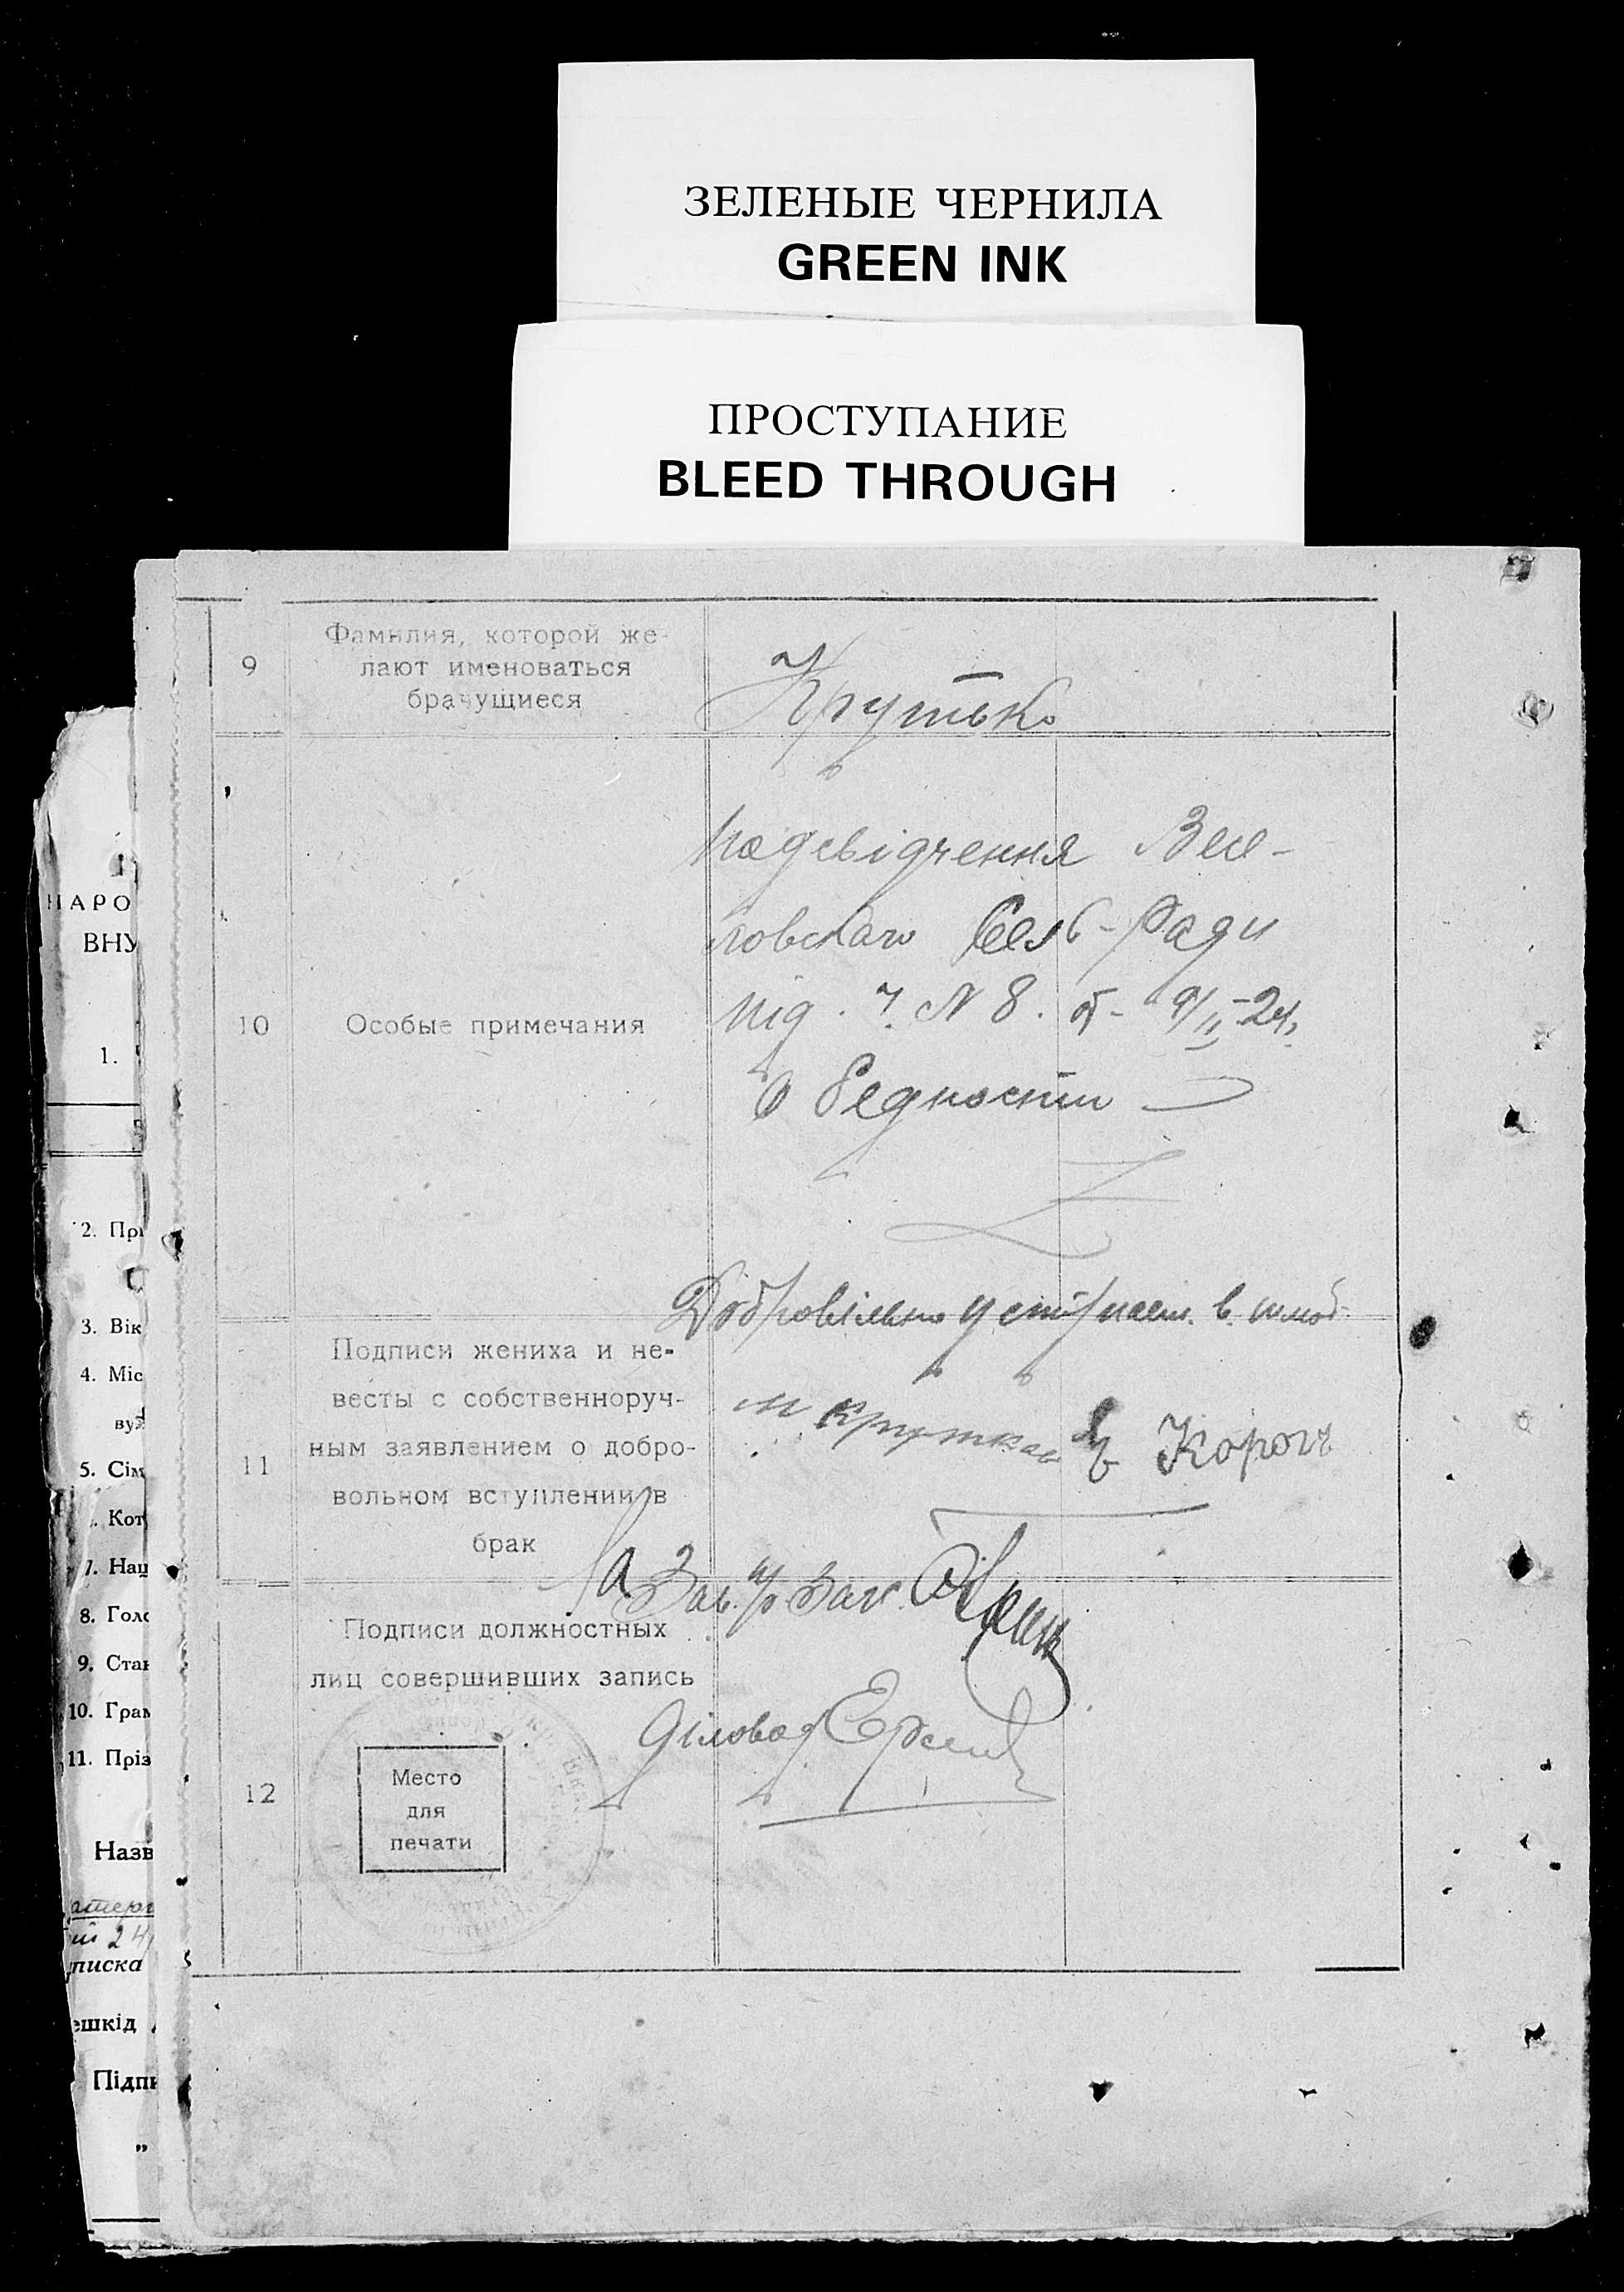 ЗЕЛЕНЫЕ ЧЕРНИЛА
GREEN INK
ПРОСТУПАНИЕ
BLEED THROUGH
9
Фамилия, которой же-
лают именоваться
брачущиеся
Крутько
10
Особые примечания
Посвідчення Весе-
ловскаго Сель-Ради
під. ч. N 8. от 9/II-24.
О бедности
Добровільно уступаем в шлюб
11
Подписи жениха и не-
весты с собственноруч-
ным заявлением о добро-
вольном вступлении в
брак
М Крутько
Корог
12
Подписи должностных
лиц совершивших запись
За Зав.
Діловод
Место
для
печати
НАРО
ВНУ
1.
2. При
3. Вік
4. Міс
вул
5. Сім
. Кот
7. Нац
8. Голо
9. Стан
10. Грам
11. Пріз
Назв
24
писка
ешкід
Підпи
„